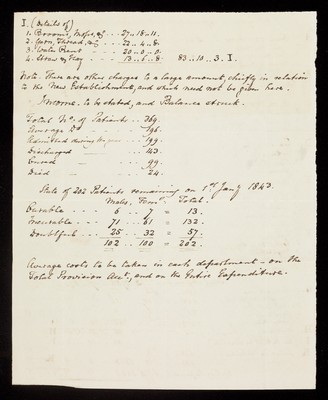 I. (details of)
1. Brooms, Mops, &c ... 27 .. 18 .. 11.
2. Yarn, Thread, &c ... 22 .. 4 .. 8.
3. Water Rent ... 20 .. 0 .. 0.
4. Straw & Hay ... 13 .. 6 .. 8. 83 .. 10 .. 3. I.
Note. There are other charges to a large amount, chiefly in relation
to the New Establishment, and which need not be given here.
Income. to be stated, and Balance struck.
Total No. of Patients .. 369.
Average Do ... 196.
Admitted during the year ... 199.
Discharged ... 143.
Cured ... 99.
Died ... 24.
State of 202 Patients remaining on 1st Jany 1843.
Males. Fems. Total.
Curable - - - 6 .. 7 = 13.
Incurable - - - 71 .. 61 = 132.
Doubtful - - - 25 .. 32 = 57.
102 .. 100 = 202.
Average costs to be taken in each department - on the
Total Provision Acct, and on the Entire Expenditure.